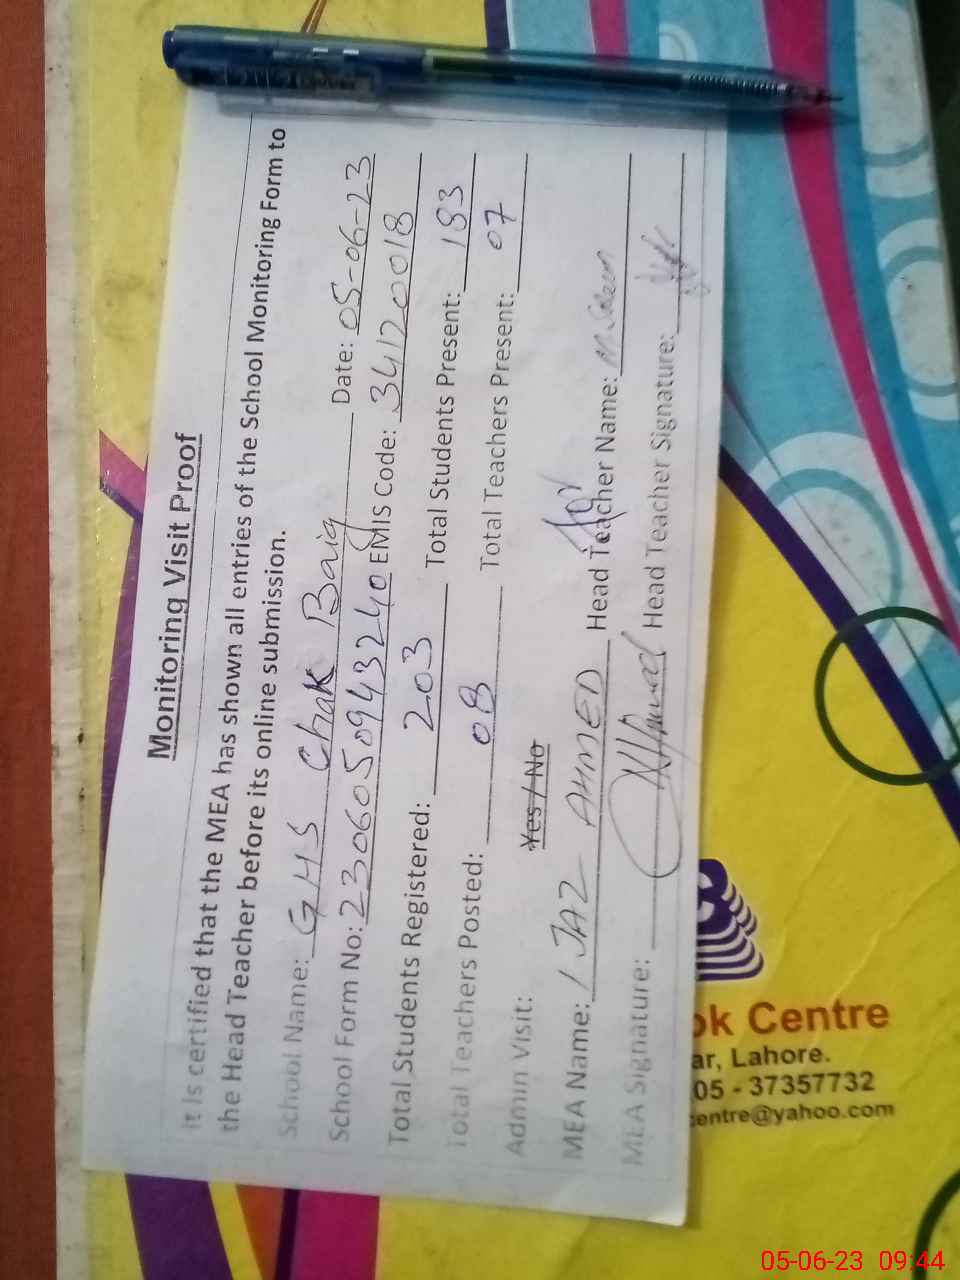 Monitoring Visit Proof
It is certified that the MEA has shown all entries of the School Monitoring Form to
the Head Teacher before its online submission.
School Name: GHS Chak Baig Date: 05-06-23
School Form No: 2306050943240 EMIS Code: 34120018
Total Students Registered: 203 Total Students Present: 183
Total Teachers Posted: 08 Total Teachers Present: 07
Admin Visit: Yes / No
MEA Name: IJAZ AHMED Head Teacher Name: M.
MEA Signature: Head Teacher Signature:
ok Centre
ar, Lahore.
05 - 37357732
entre@yahoo.com
05-06-23 09:44